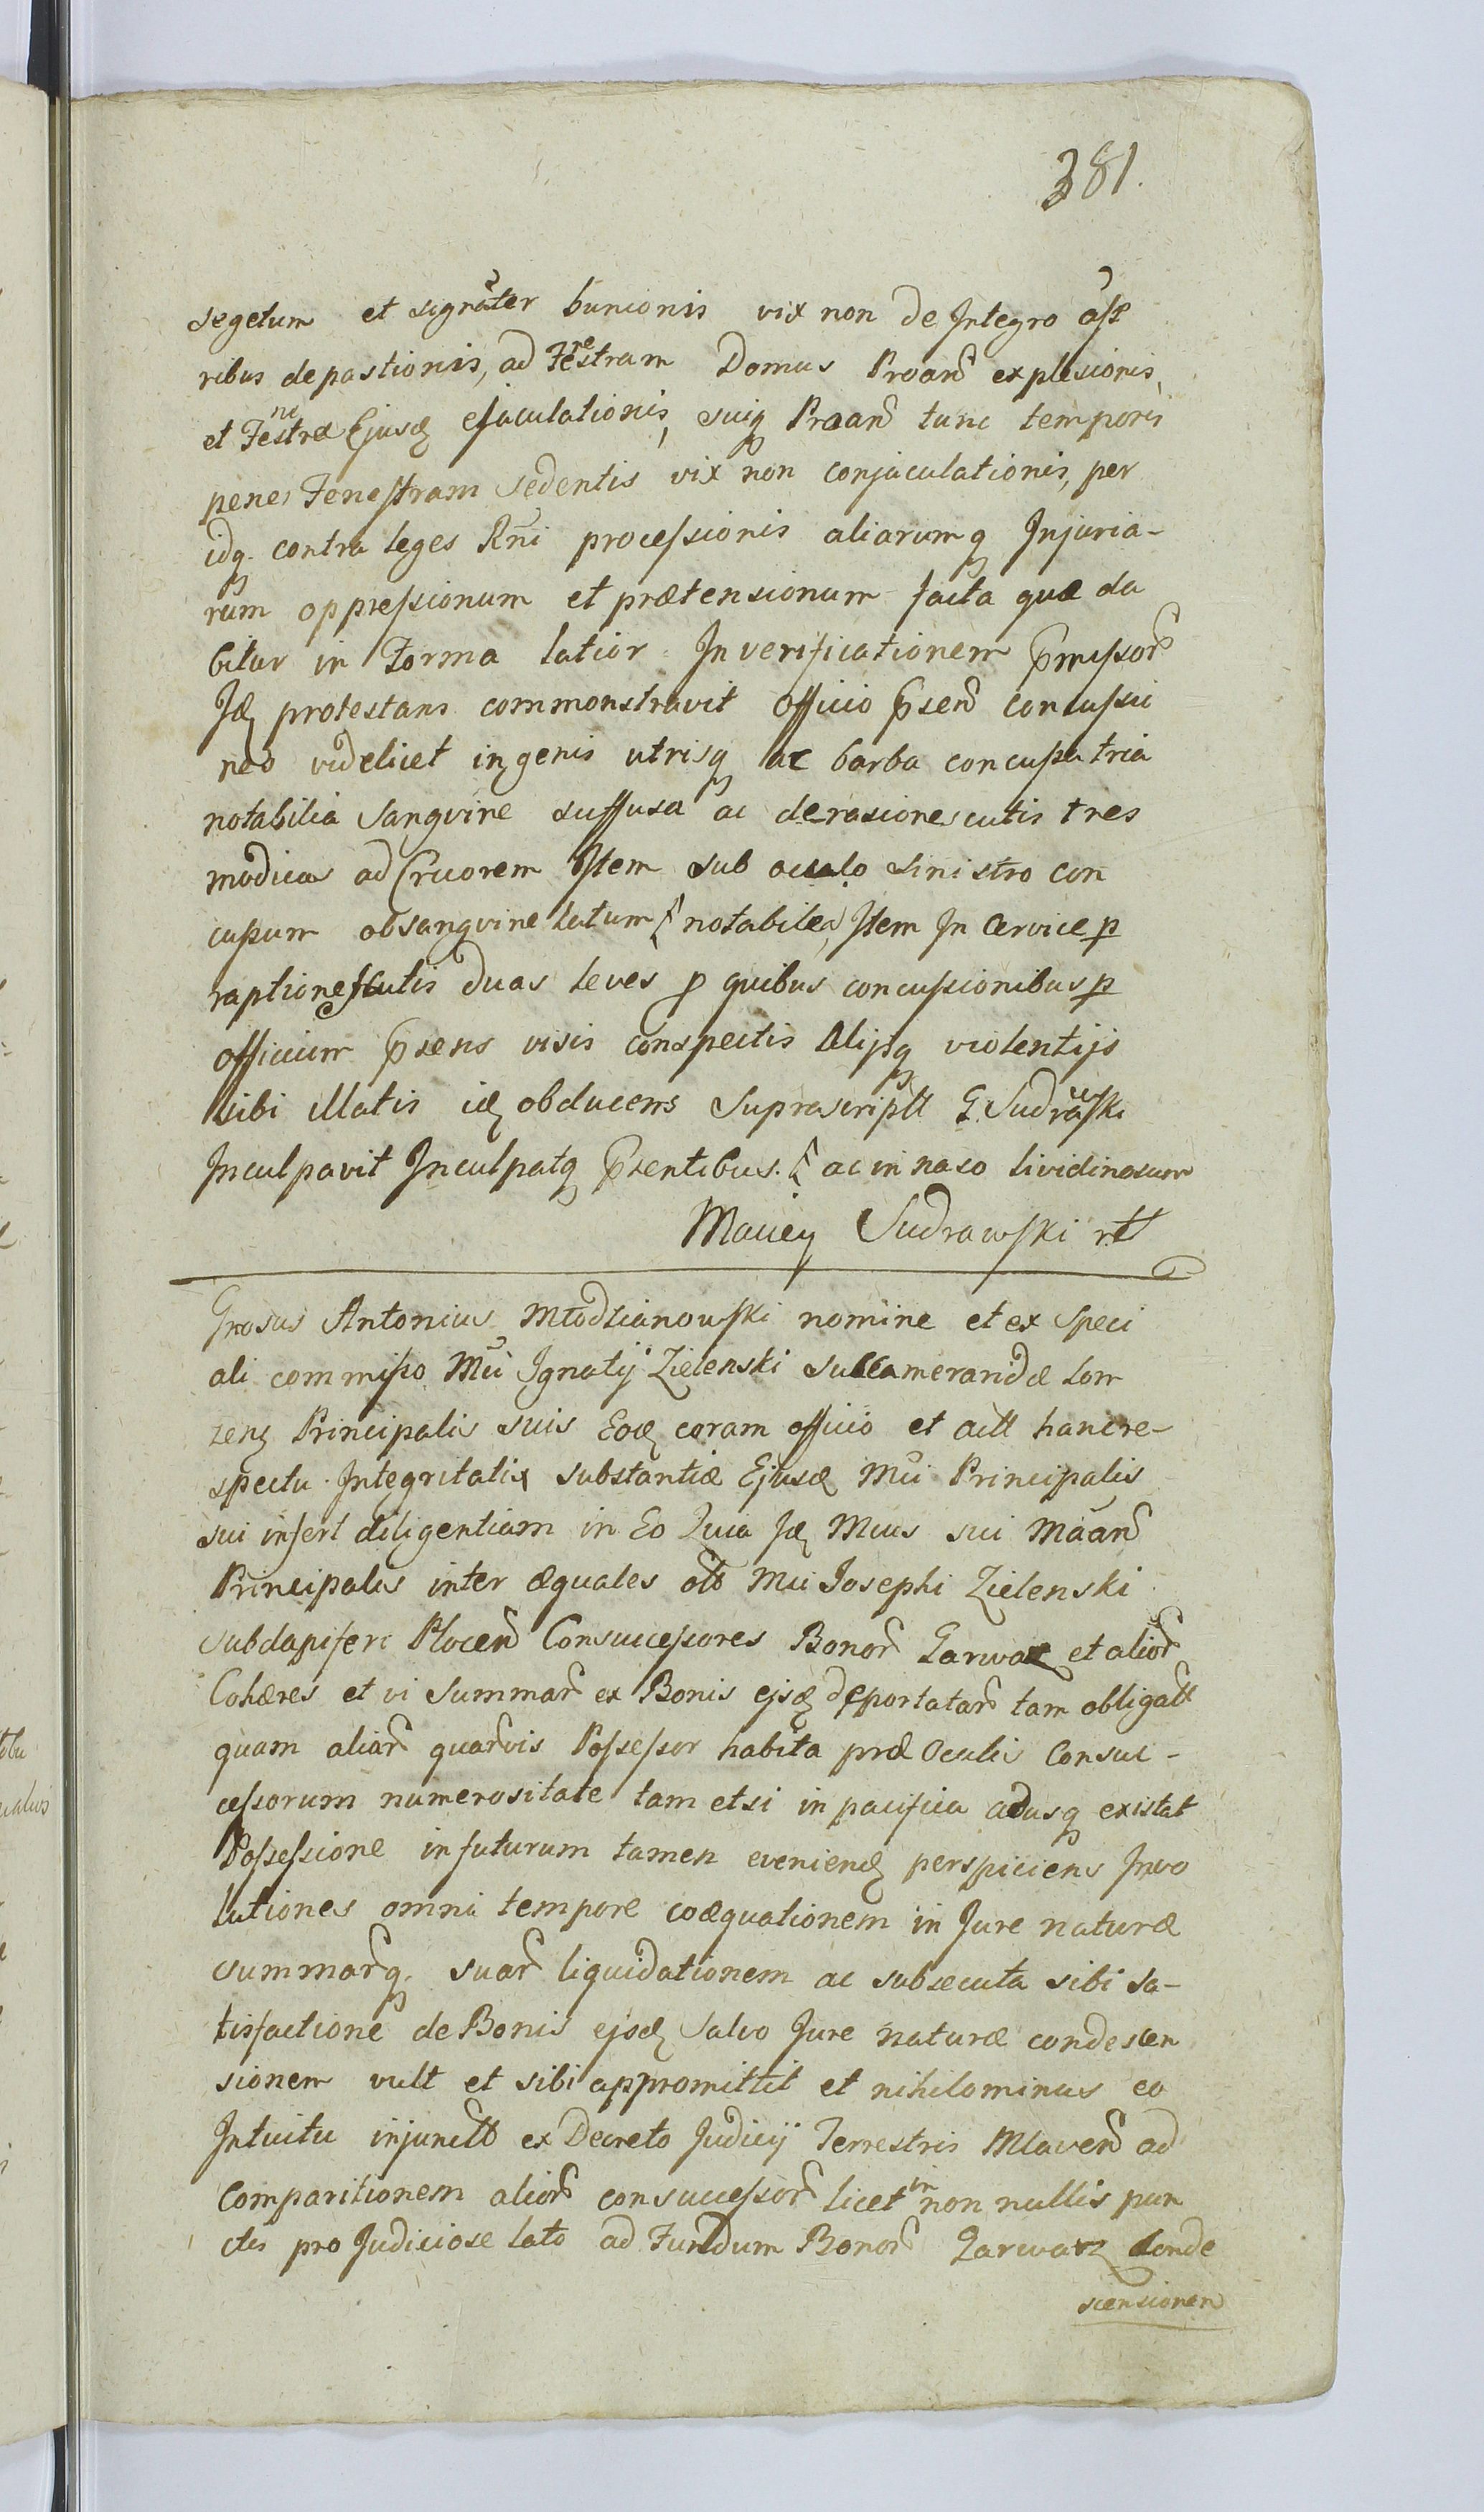 381.
segetum et signãter bunionis vix non de Integro
ribus depastionis, ad Fenestram Domus Proand explesionis,
et Fenestræ Ejusd ejaculationis, suiq Praand tunc temporis
penes Fenestram sedentis vix non conjaculationis, per
idq. contra leges Rñi processionis aliarumq Injuria-
rum oppressionum et prætensionum facta quæ da
bitur in Forma latior. In verificationem pmissor
Id protestans commonstravit officio psend concussu
neo videlicet in genis utrisq ac barba concussa tria
notabilia Sangvine suffusa ac derasiones cutis tres
modicas ad Cruorem Item sub oculo sinistro con
cussum obsangvinelatum notabile, Item In Cervice p
raptiones cutis duas leves p quibus concussionibus p
officium psens visis conspectis Alijsq violentijs
sibi illatis id obducens Suprascriptt G. Sudrawski
Inculpavit Inculpatq psentibus. ac in naso lividinosum
Maciey Sudrawski
Grosus Antonius Młodzianowski nomine et ex Speci
ali commisso Mci Ignatij Zielenski Succamerandæ Lom
zens Principalis suis Eod coram officio et actt hanc re-
spectu Integritatis substantiæ Ejusd Mci Principalis
sui infert diligentiam in Eo Quia Id Mcus sui Maand
Principalis inter æquales olb Mci Josephi Zielenski
Subdapiferi Plocen Consuccessores Bonor Garwarz et alior
Cohæres et vi Summar ex Bonis ejsd deportatar tam obligatt
quam aliar quarvis Possessor habita præ Oculis Consuc-
cessorum numerositate tam etsi in pacifica adusq existat
Possessione in futurum tamen eveniend perspiciens Invo
lutiones omni tempore coæquationem in Jure naturæ
summarq. suar liquidationem ac subsecuta sibi sa-
tisfactione de Bonis ejsd Salvo Jure naturæ condescen
sionem vult et sibi appromittit et nihilominus eo
Intuitu injunctt ex Decreto Judicij Terrestris Mlavend ad
Comparitionem alior consuccessor licet in non nullis pun
ctis pro Judiciose lato ad Fundum Bonor Garwarz Conde
scensionem